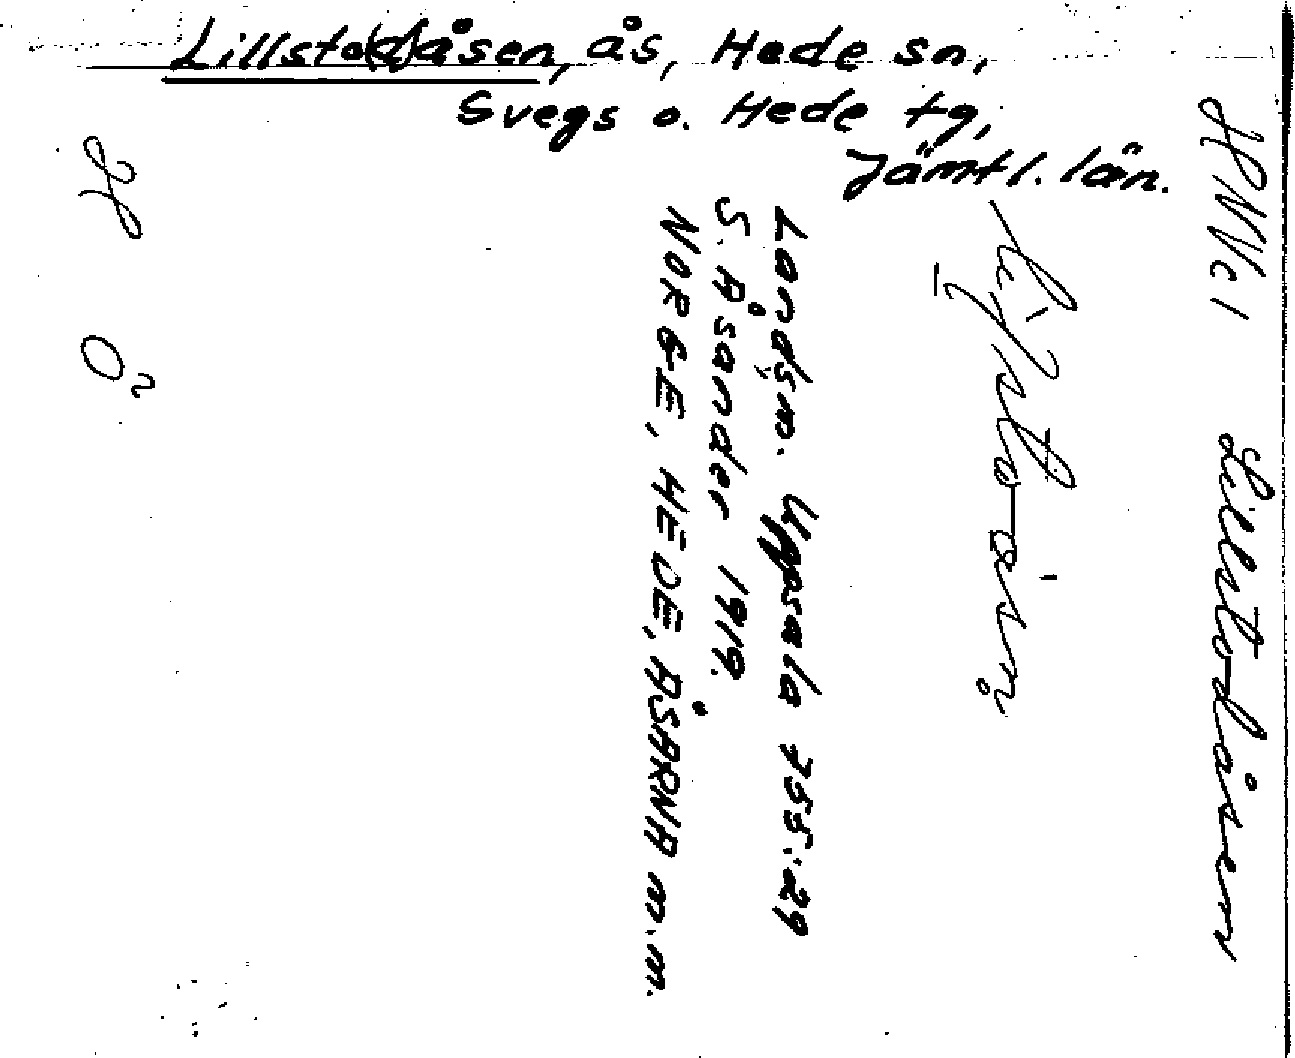 Lillsto(d)åsen, ås, Hede sn,
Svegs o. Hede tg,
Jämtl. län.
HNVc1 Lillstodåsen
I
Landsm. Uppsala 755:29
S. Åsander 1919.
NORGE, HEDE, ÅSARNA m.m.
H Ö